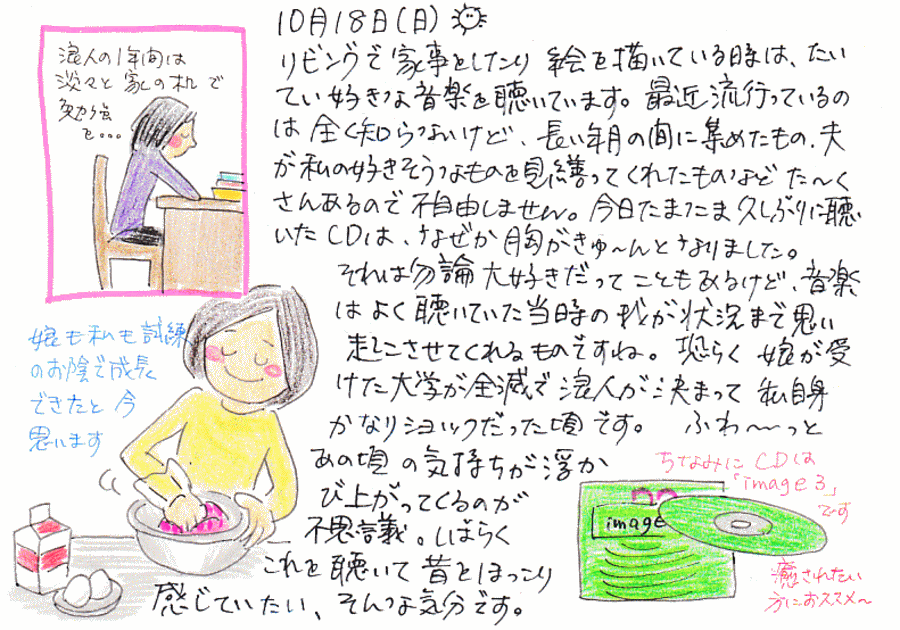 10月18日(日)
リビングで家事をしたり絵を描いている時は、たい
てい好きな音楽を聴いています。最近流行っているの
は全く知らないけど、長い年月の間に集めたもの、夫
が私の好きそうなものを見繕ってくれたものなどた〜く
さんあるので不自由しません。今日たまたま久しぶりに聴
いたCDは、なぜか胸がきゅ〜んとなりました。
それは勿論大好きだってこともあるけど、音楽
はよく聴いていた当時の我が状況まで思い
起こさせてくれるものですね。恐らく娘が受
けた大学が全滅で浪人が決まって私自身
かなりショックだった頃です。ふわ〜〜っと
あの頃の気持ちが浮か
び上がってくるのが
不思議。しばらく
これを聴いて昔とほっこり
感じていたい、そんな気分です。
浪人の1年間は
淡々と家の机で
勉強
を...
娘も私も試練
のお陰で成長
できたと今
思います
ちなみにCDは
「image3」
です
image
癒されたい
方におススメ〜